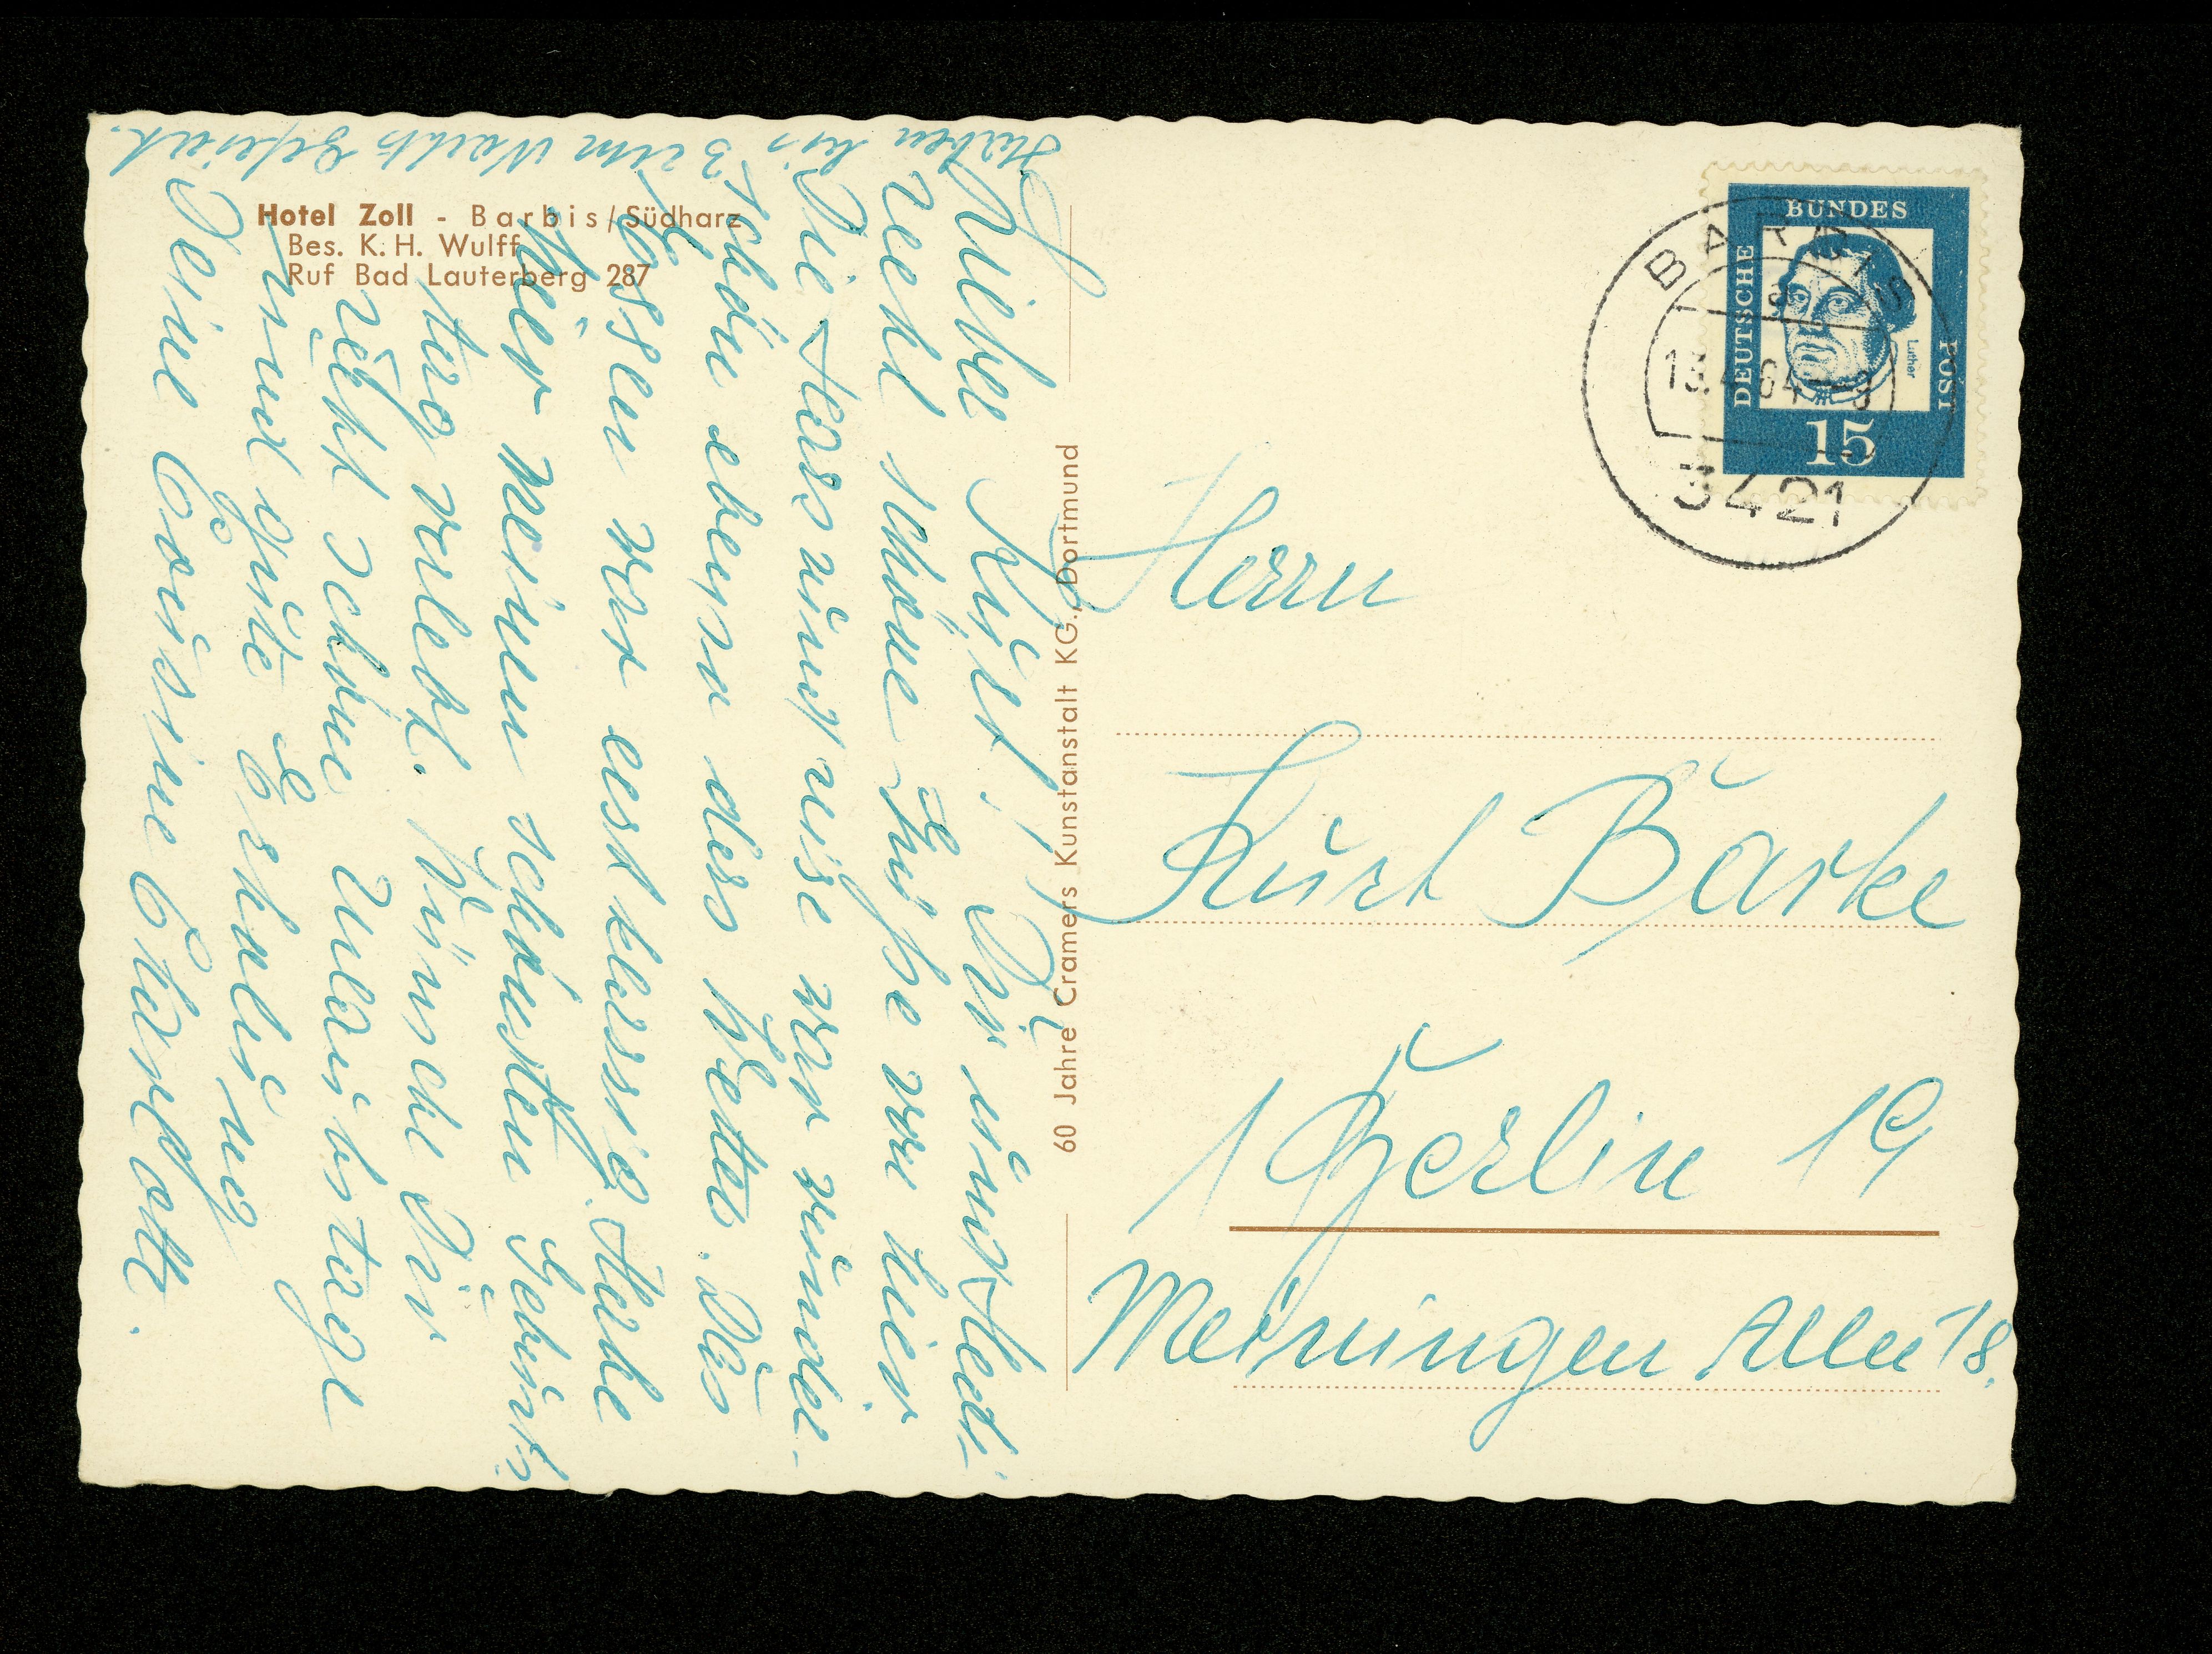 Hotel Zoll - Barbis/Südharz
Bes. K. H. Wulff
Ruf Bad Lauterberg 287
60 Jahre Cramers Kunstanstalt KG., Dortmund
DEUTSCHE
BUNDES
POST
Luther
15
BARBIS
a
13.4.64
3421
Herrn
Kurt Barke
1 Berlin 19
Meiningen Allee 18.
Lieber Kurt! Dir und Hedi
recht schöne Grüße von hier
Die Harzrundreise war wunder-
schön ebenso das Wetter. Das
Essen war erstklassig. Habe
hier meinen schönsten Geburts-
tag verlebt. Wünsche Dir
recht schöne Urlaubstage
und gute Erholung
Deine Cousine Charlotte.
Haben bis 3 Uhr Nachts gefeiert.